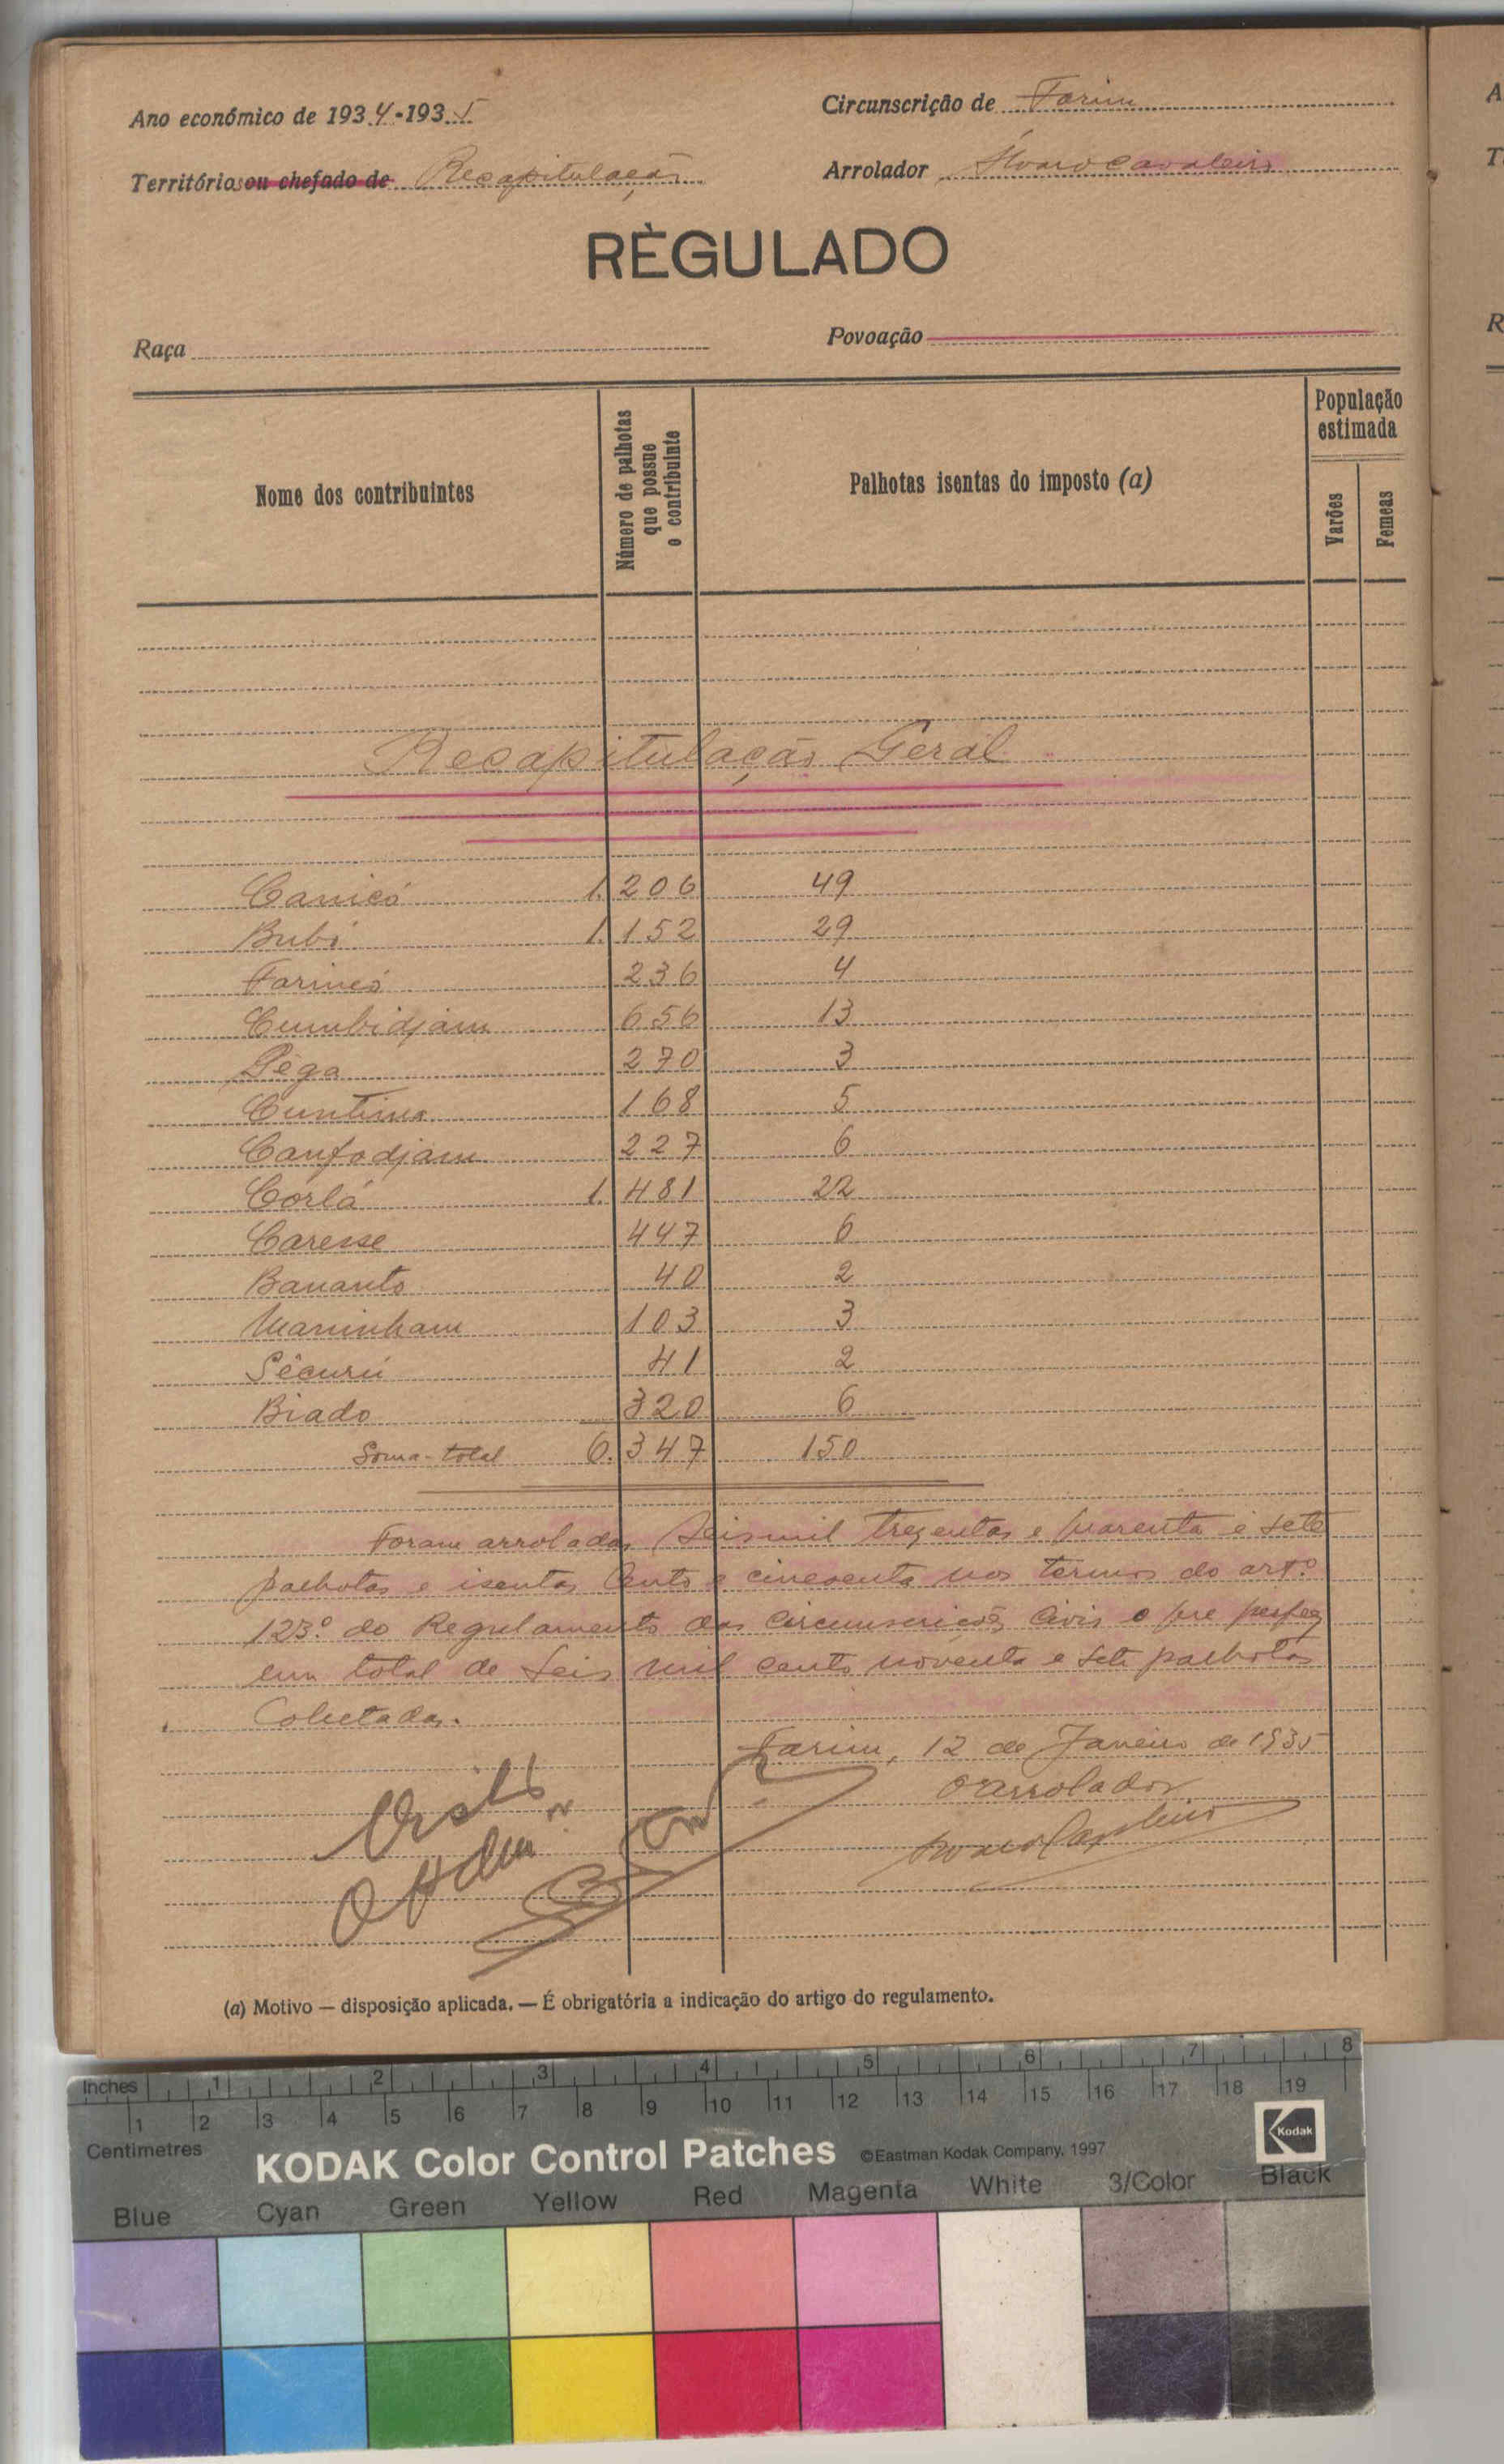 Ano económico de 1934-1935
Circunscrição de Farim
Territórios ou chefado de Recapitulação
Arrolador Álvaro Cavaleiro
RÈGULADO
Raça
Povoação
Nome dos contribuintes
Número de palhotas que possue o contribuinte
Palhotas isentas do imposto (a)
População estimada
Varões
Femeas
Recapitulação Geral
Canicó 1.206 49
Bubo 1.152 29
Farincó 236 4
Cumbidjam 656 13
Péga 270 3
Cuntima 168 5
Canfodjam 227 6
Córlá 1.481 22
Caresse 447 6
Bananto 40 2
Maninham 103 3
Sêcurú 41 2
Biado 320 6
Soma-total 6.347 150
Foram arroladas seis mil trezentas e quarenta e sete
palhotas e isentas cento e cincoenta nos termos do artº.
123º. do Regulamento das Circunscrições Civis o que perfez
um total de seis mil cento noventa e sete palhotas
Colectadas.
Farim, 12 de Janeiro de 1935
O arrolador
Visto
O Admor
(a) Motivo — disposição aplicada. — É obrigatória a indicação do artigo do regulamento.
Inches 1 2 3 4 5 6 7 8
1 2 3 4 5 6 7 8 9 10 11 12 13 14 15 16 17 18 19
Centimetres
KODAK Color Control Patches ©Eastman Kodak Company, 1997
Kodak
Blue Cyan Green Yellow Red Magenta White 3/Color Black
A
T
R